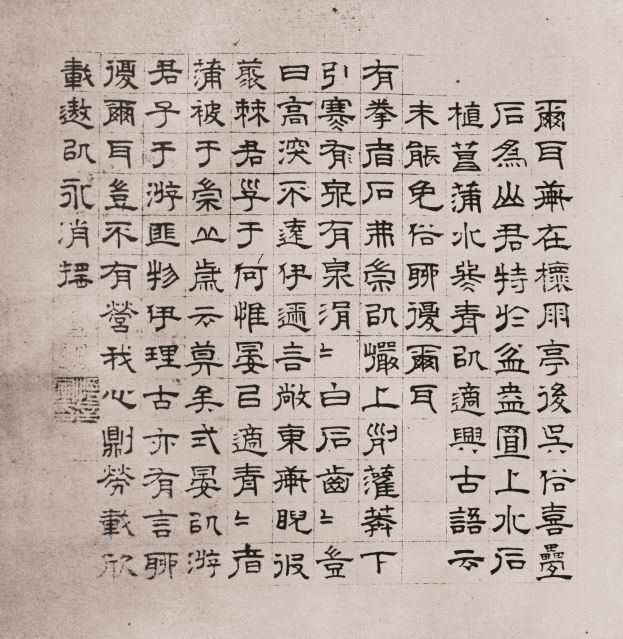 爾耳軒在槐雨亭後吳俗喜疊
石為山君特於盆盎置上水石
植菖蒲水冬青以適興古語云
未能免俗聊復爾耳
有拳者石弗崇以巖上列灌莽下
引寒有泉有泉涓〻白石齒〻豈
曰高深不遠伊邇言敞東軒睨彼
叢棘君子于何惟晏以適青〻者
蒲被于崇丘歲云莫矣式晏以游
君子于游匪物伊理古亦有言聊
復爾耳豈不有營我心則勞載欣
載遨以永消搖